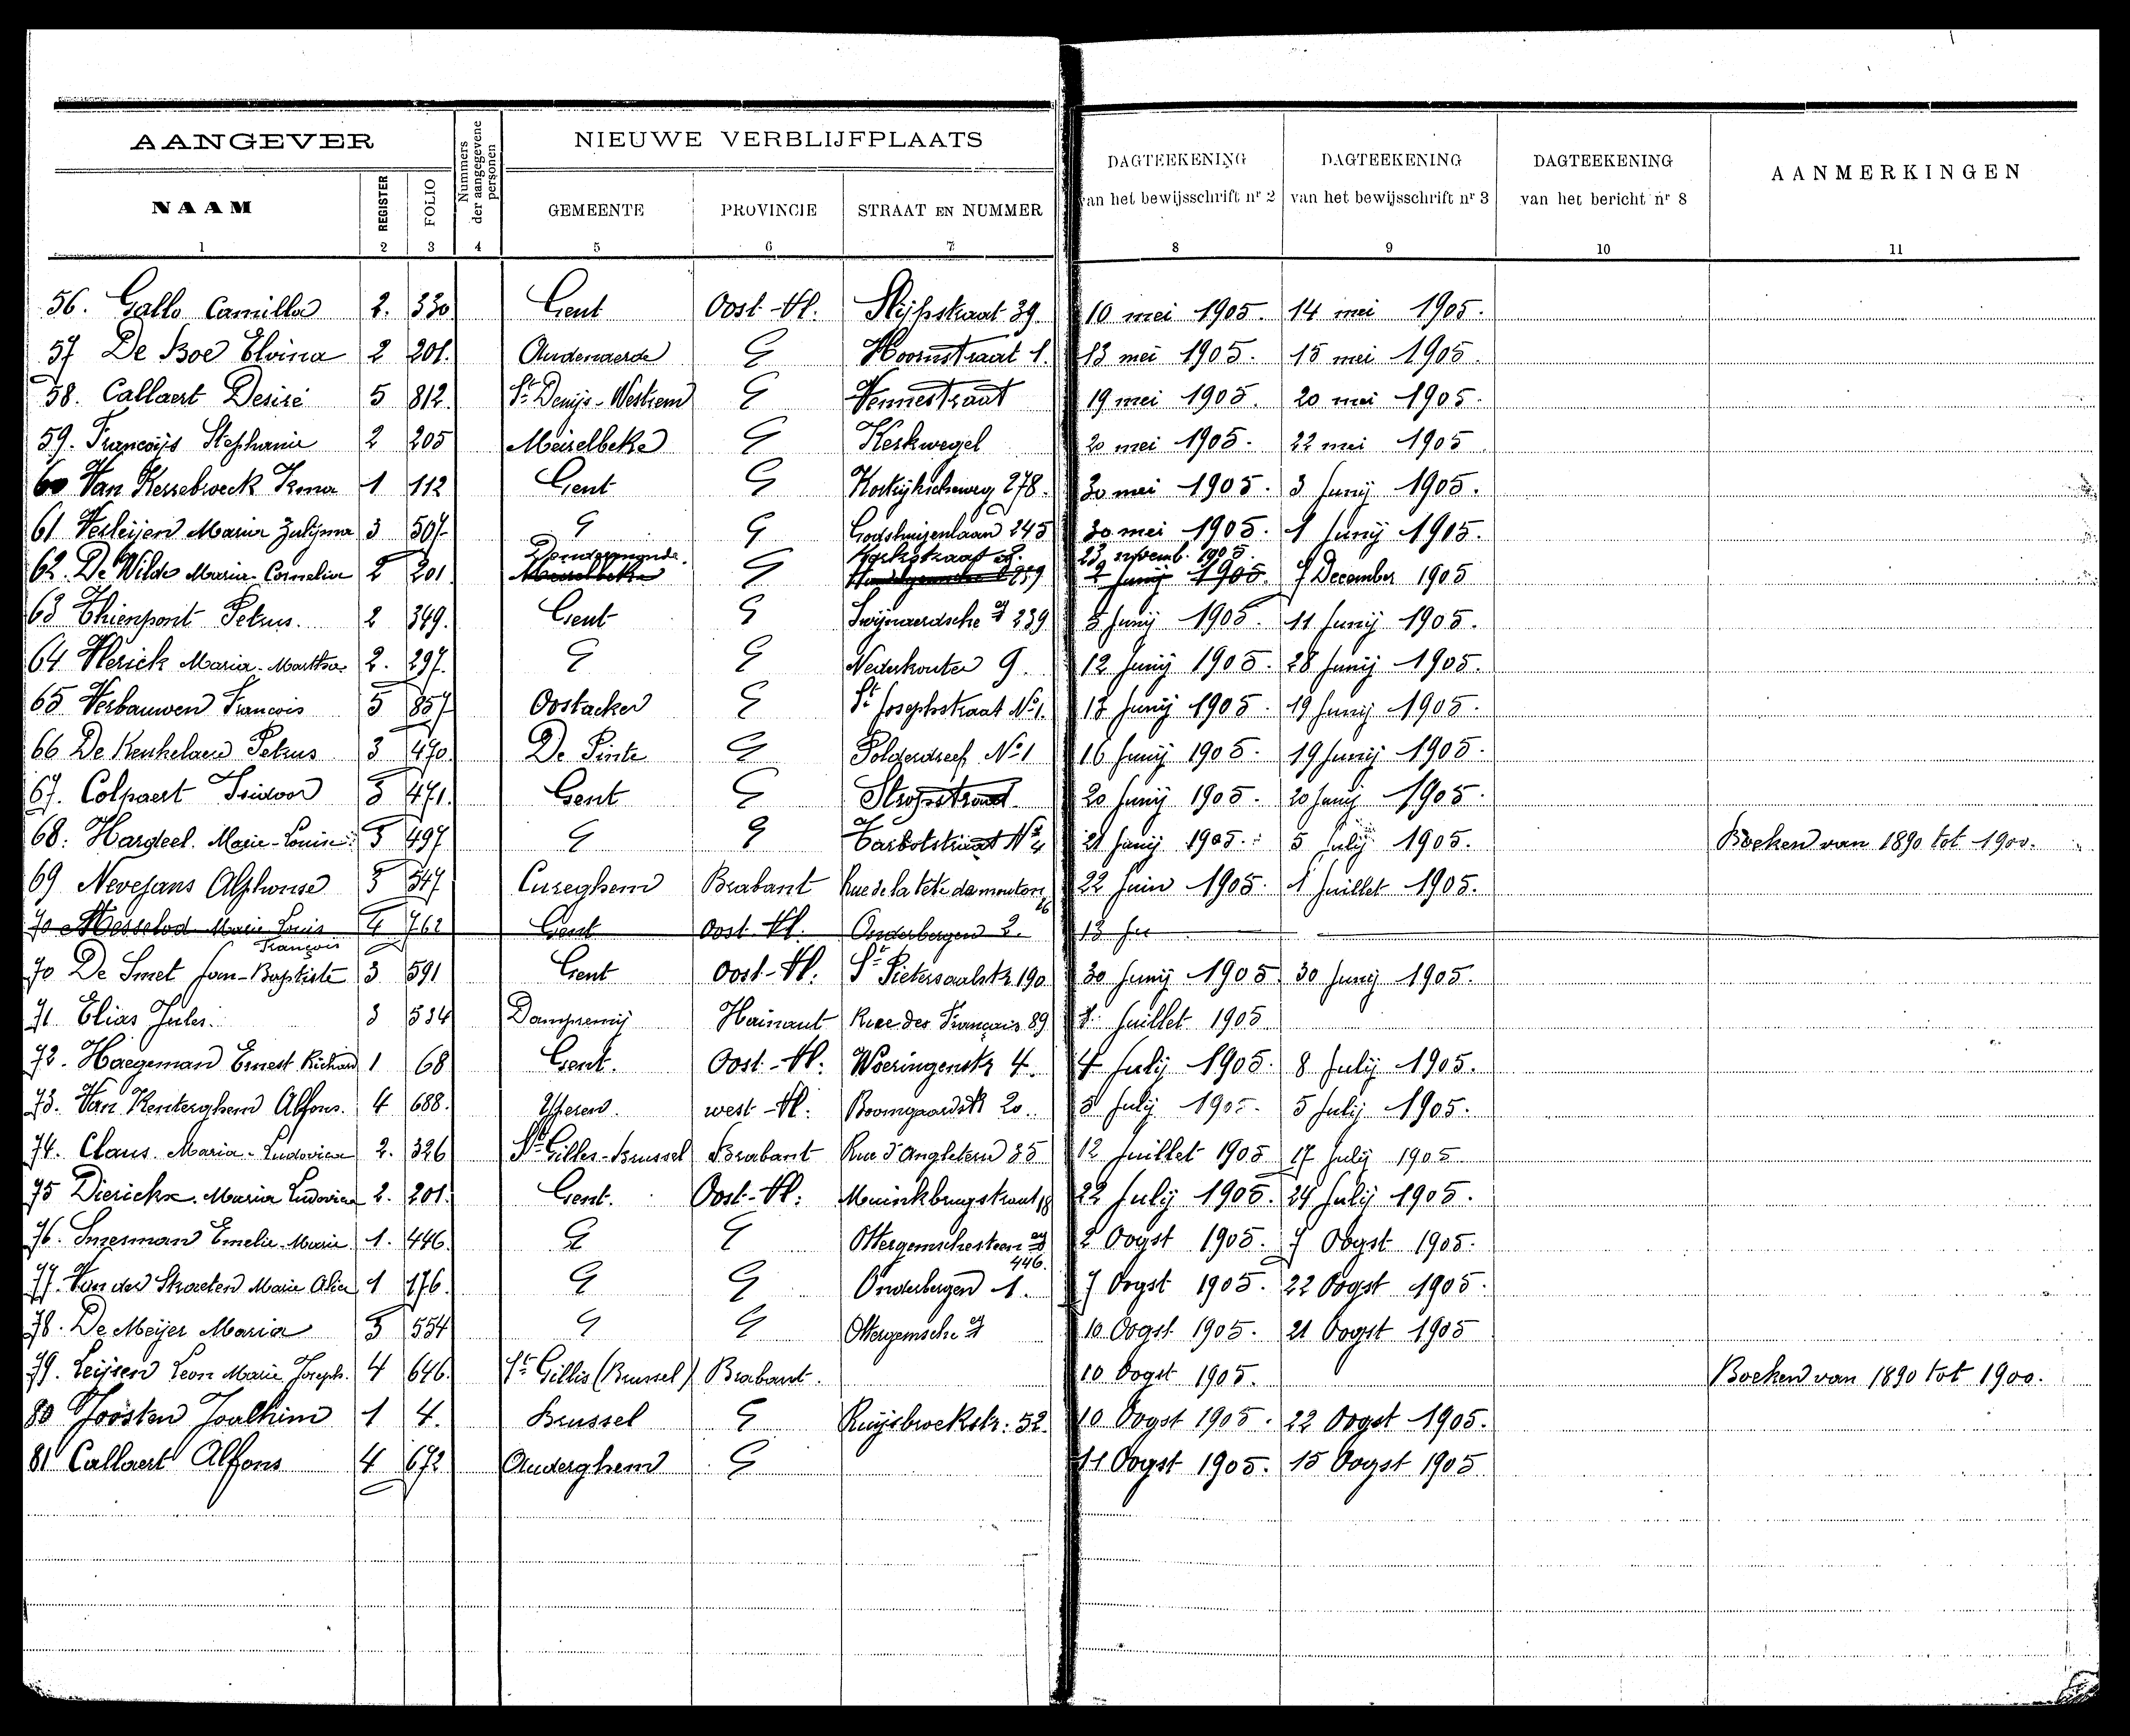 AANGEVER
Nummers der aangegevene personen
NIEUWE VERBLIJFPLAATS
DAGTEEKENING van het bewijsschrift nr 2
DAGTEEKENING van het bewijsschrift nr 3
DAGTEEKENING van het bericht nr 8
AANMERKINGEN
NAAM REGISTER FOLIO GEMEENTE PROVINCIE STRAAT EN NUMMER
1 2 3 4 5 6 7 8 9 10 11
56. Gallo Camilla 2. 330 Gent Oost-Vl. Slijpstraat 39 10 mei 1905. 14 mei 1905.
57 De Boe Elvina 2 201. Audenaerde G Hoornstraat 1. 13 mei 1905. 15 mei 1905.
58. Callaert Desiré 5 812. St Denijs-Westrem G Vennestraat 19 mei 1905. 20 mei 1905.
59. Francoijs Stephanie 2 205 Meirelbeke G Kerkwegel 20 mei 1905. 22 mei 1905
60 Van Hessebroeck Irma 1 112 Gent G Kortrijkscheweg 278. 30 mei 1905. 3 Junij 1905.
61 Verleijen Maria Zulijma 3 507 G G Godshuizenlaan 245 30 mei 1905. 1 Junij 1905.
Dendermonde. Kerkstraat 23 novemb. 1905.
62. De Wilde Maria-Cornelia 2 201 Meirelbeke G 2 Junij 1905. 7 December 1905
63 Thienpont Petrus. 2 349. Gent G Swijnaerdsche 239 5 Junij 1905. 11 Junij 1905.
64 Vlerick Maria-Martha 2. 297. G G Nederkouter 9. 12 Junij 1905. 28 Junij 1905.
65 Verbauwen Francois 5 857 Oostacker G St Josephstraat No 1. 13 Junij 1905. 19 Junij 1905.
66 De Keukelaere Petrus 3 470. De Pinte G Polderdreef No 1 16 Junij 1905. 19 Junij 1905.
67. Colpaert Isidoor 3 471. Gent G Stropstraat 20 Junij 1905. 20 Junij 1905.
68. Hardeel. Marie-Louise. 3 497 G G Tarbotstraat No 4 21 Junij 1905. 5 Julij 1905. Boeken van 1890 tot 1900.
69 Nevejans Alphonse 3 547 Cureghem Brabant Rue de la tête de mouton 26 22 Juin 1905. 1 Juillet 1905.
70 Messelod Marie Louis 4 762 Gent Oost-Vl. Onderbergen 2. 13 Ju
François
70 De Smet Jean-Baptiste 3 591 Gent Oost-Vl. St Pietersaalstr. 190 30 Junij 1905 30 Junij 1905.
71. Elias Jules. 3 534 Dampremij Hainaut Rue des Français 89 3 Juillet 1905
72. Haegeman Ernest Richard 1 68 Gent. Oost-Vl. Woeringenstr. 4. 4 Julij 1905. 8 Julij 1905.
73. Van Renterghem Alfons. 4 688. Yperen. west-Vl. Boomgaardstr 20. 3 Julij 1905. 5 Julij 1905.
74. Claus. Maria-Ludovica 2. 326 St Gilles-Brussel Brabant Rue d'Angleterre 35 12 Juillet 1905 17 Julij 1905
75 Dierickx. Maria Ludovica 2. 201. Gent. Oost-Vl. Muinkbrugstraat 18 22 Julij 1905. 24 Julij 1905.
76. Snesman Emelie-Marie 1. 446. G G Ottergemschesteenweg 446. 2 Oogst 1905. 7 Oogst 1905.
77. Van der Straeten Marie Alice 1 176. G G Onderbergen 1. 7 Oogst 1905. 22 Oogst 1905.
78. De Meijer Maria 3 554 G G Ottergemsche 10 Oogst 1905. 21 Oogst 1905
79. Leijsen Leon Marie Joseph. 4 646. St Gillis (Brussel) Brabant. 10 Oogst 1905. Boeken van 1890 tot 1900.
80 Joosten Joachim 1 4. Brussel G Ruijsbroekstr. 52. 10 Oogst 1905. 22 Oogst 1905.
81 Callaert Alfons 4 672 Auderghem G 11 Oogst 1905. 15 Oogst 1905